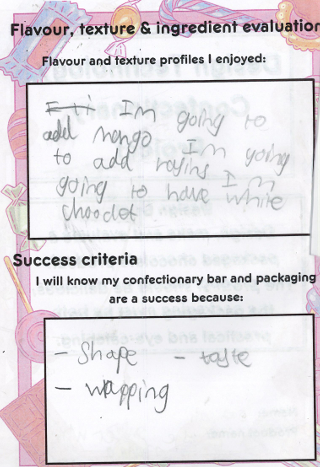 Flavour, texture & ingredient evaluation
Flavour and texture profiles I enjoyed:
I'm going to
add mango I'm going
to add rasins I'm
going to have white
chooclet
Success criteria
I will know my confectionary bar and packaging
are a success because:
- Shape - taste
- wapping